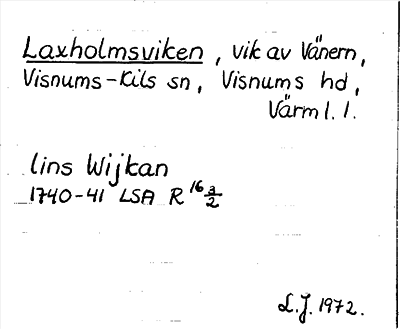 Laxholmsviken, vik av Vänern,
Visnums-Kils sn, Visnums hd,
Värml. l.
lins Wijkan
1740-41 LSA R 16 3/2
L.J. 1972.